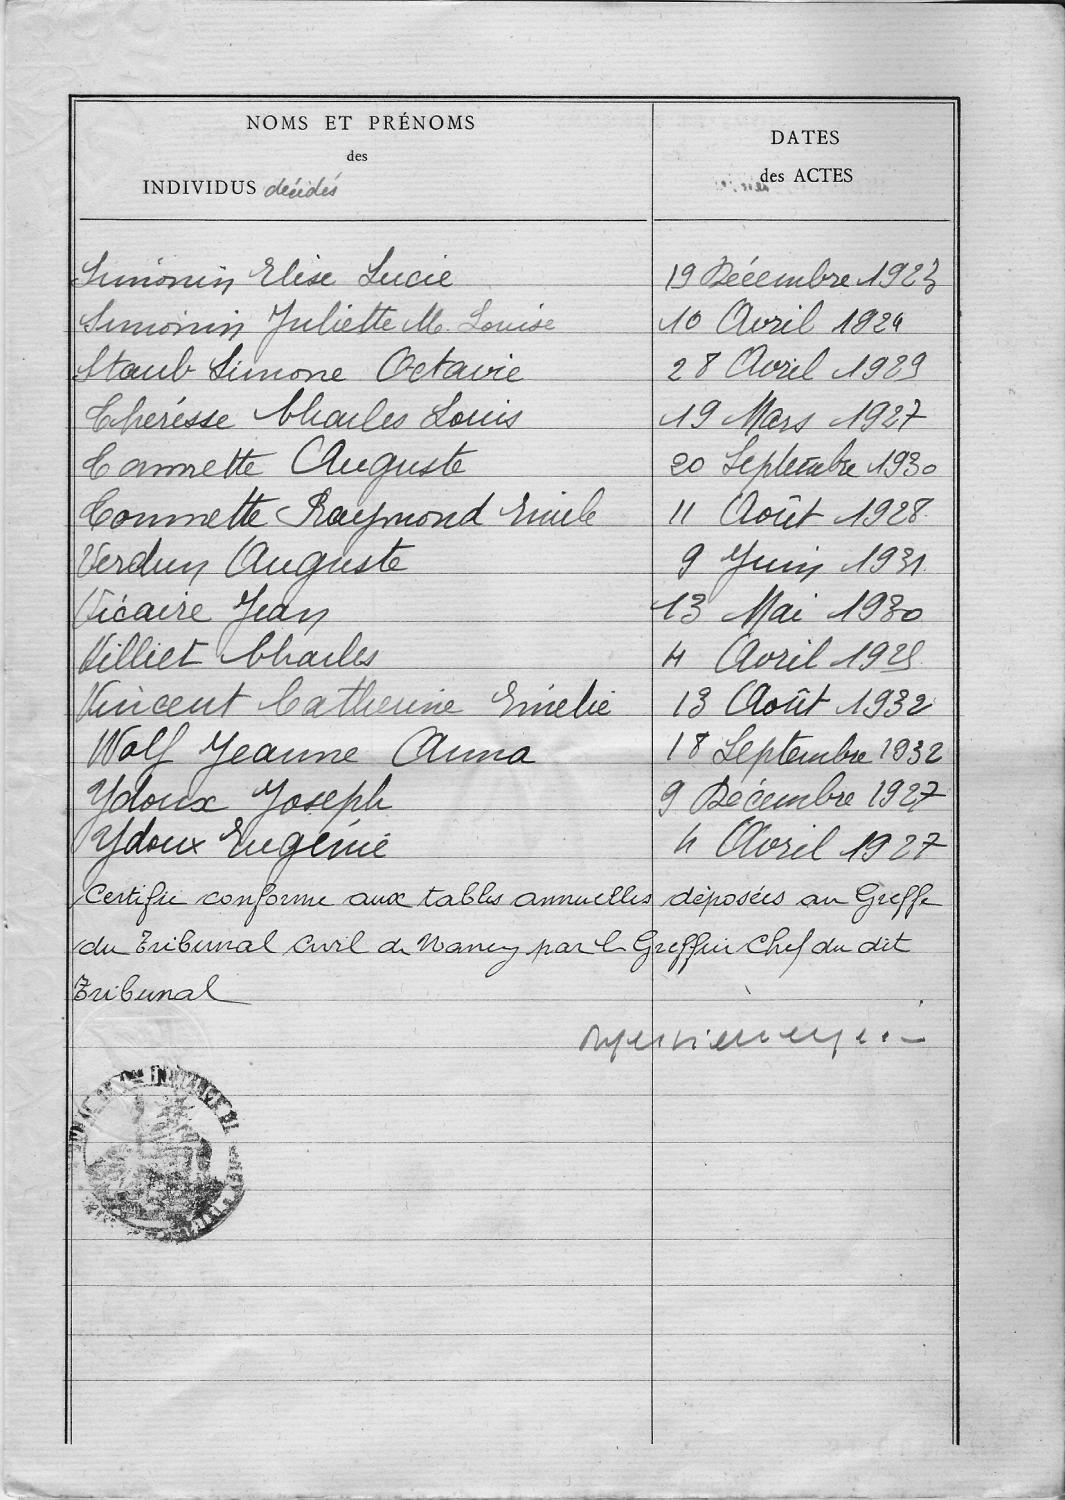 NOMS ET PRÉNOMS
des
INDIVIDUS décédés
DATES
des ACTES
Simonin Elise Lucie 19 Décembre 1923
Simonin Juliette M. Louise 10 Avril 1924
Staub Simone Octavie 28 Avril 1929
Thérésse Charles Louis 19 Mars 1927
Tonnette Auguste 20 Septembre 1930
Tonnette Raymond Emile 11 Août 1928
Verdun Auguste 9 Juin 1931
Vicaire Jean 13 Mai 1930
Villiet Charles 4 Avril
Vincent Catherine Emélie 13 Août 1932
Wolf Jeanne Anna 18 Septembre 1932
Ydoux Joseph 9 Décembre 1927
Ydoux Eugénie 4 Avril 1927
Certifié conforme aux tables annuelles déposées au Greffe
du Tribunal Civil de Nancy par le Greffier Chef du dit
Tribunal
INSTANCE DE